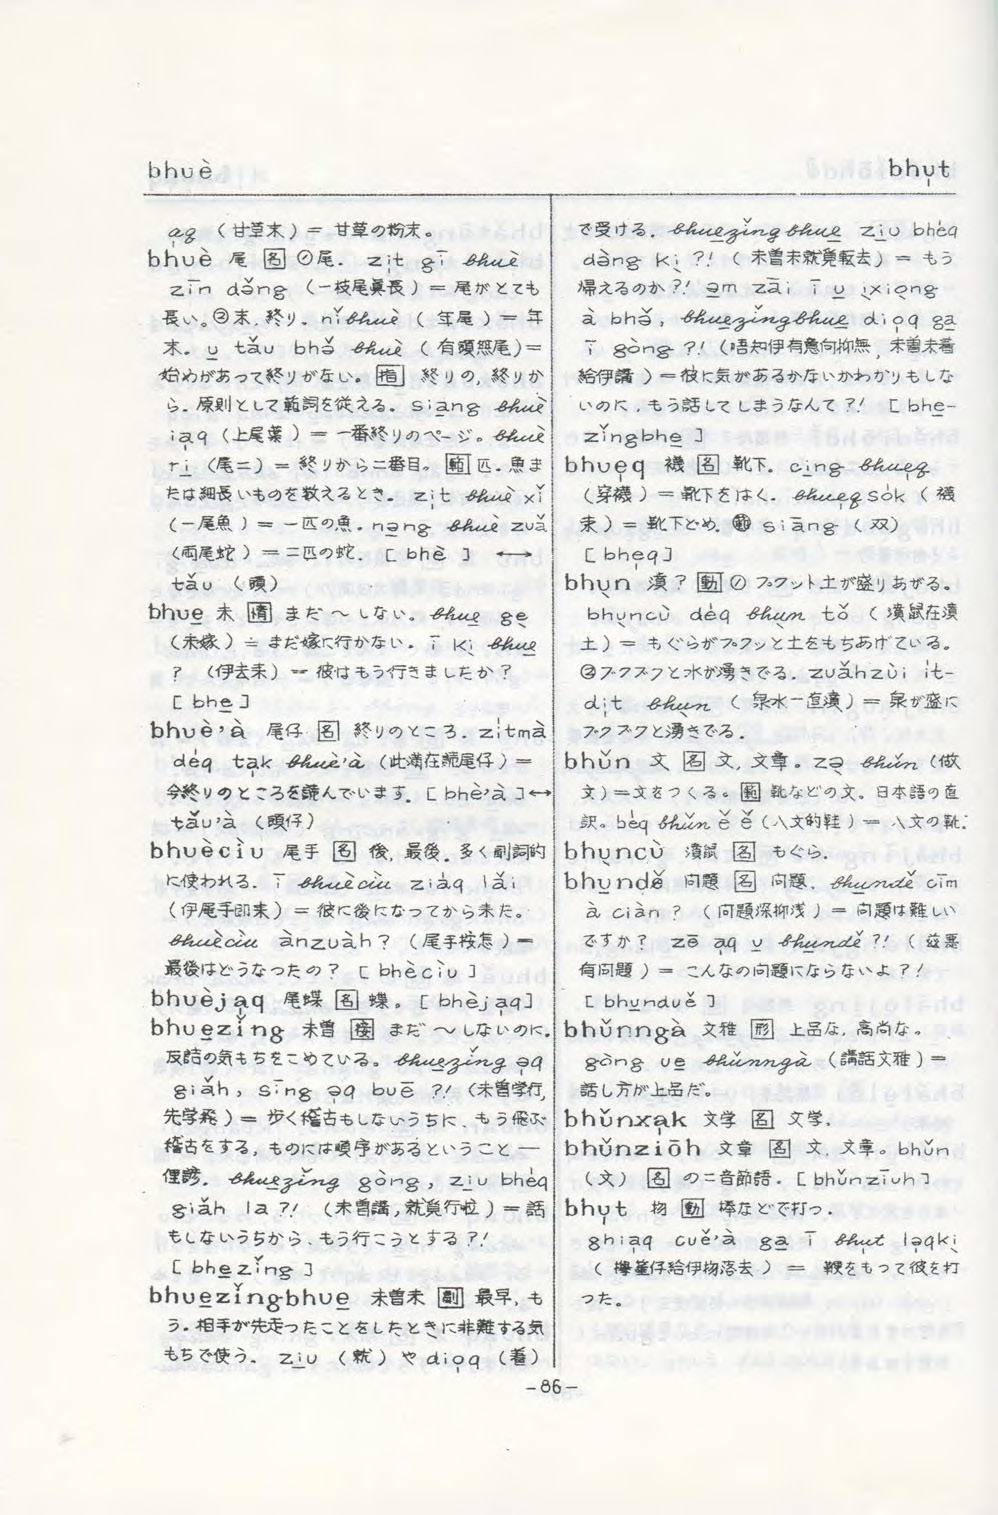 bhuè
bhu̍t
aq (甘草末) = 甘草の粉末。
bhuè 尾 [名] ①尾. zi̍t gī bhuè
zīn dǒng (一枝尾眞長) = 尾がとても
長い。②末. 終り. nǐbhuè (年尾) = 年
末. u̲ tǎu bhǒ bhuè (有頭無尾) =
始めがあって終りがない。[指] 終りの. 終りか
ら. 原則として範詞を従える. siang bhuè
ia̍q (上尾葉) = 一番終りのページ。bhuè
ri̲ (尾二) = 終りから二番目。[範] 匹. 魚ま
たは細長いものを数えるとき. zi̍t bhuè xǐ
(一尾魚) = 一匹の魚. nn̲g bhuè zuǎ
(両尾蛇) = 二匹の蛇. [bhè] ←→
tǎu (頭)
bhue̲ 未 [情] まだ〜しない。bhue̲ ge̲
(未嫁) = まだ嫁に行かない. ī ki̍ bhue̲
? (伊去未) = 彼はもう行きましたか?
[bhe̲]
bhuè'à 尾仔 [名] 終りのところ. zi̍tmà
dėq ta̍k bhuè'à (此満在読尾仔) =
今終りのところを読んでいます. [bhè'à] ←→
tǎu'à (頭仔)
bhuèciu 尾手 [名] 後. 最後. 多く副詞的
に使われる. ī bhuècìu ziáq lǎi
(伊尾手即来) = 彼は後になってから来た。
bhuècìu ànzuàh? (尾手按怎) =
最後はどうなったの? [bhècìu]
bhuèja̍q 尾蝶 [名] 蝶. [bhèja̍q]
bhue̲zǐng 未曽 [接] まだ〜しないのに.
反詰の気もちをこめている。bhue̲zǐng o̍q
giǎh, sīng o̍q buē ?! (未曽学行,
先学飛) = 歩く稽古もしないうちに, もう飛ぶ
稽古をする. ものには順序があるということ ―
俚諺. bhue̲zǐng gòng, zi̲u bhėq
giǎh la ?! (未曽講, 就覓行啦) = 話
もしないうちから, もう行こうとする?!
[bhe̲zǐng]
bhue̲zǐngbhue̲ 未曽未 [副] 最早. も
う. 相手が先走ったことをしたときに非難する気
もちで使う. zi̲u (就) や dio̍q (着)
で受ける. bhue̲zǐngbhue̲ zi̲u bhėq
dàng ki̍ ?! (未曽未就覓転去) = もう
帰えるのか?! m̲ zāi ī u̲ i̍xio̍ng
à bhǒ, bhue̲zǐngbhue̲ dio̍q ga̲
ī gòng ?! (唔知伊有意向抑無, 未曽未着
給伊講) = 彼に気があるかないかわかりもしな
いのに, もう話してしまうなんて?! [bhe̲-
zǐngbhe̲]
bhue̍q 襪 [名] 靴下. cing bhue̍q
(穿襪) = 靴下をはく. bhue̍qsók (襪
束) = 靴下どめ. [範] siāng (双)
[bhe̍q]
bhùn 濆? [動] ① フクフクと土が盛りあがる。
bhùncù dėq bhùn tǒ (濆鼠在濆
土) = もぐらがフクフクと土をもちあげている。
②フクフクと水が湧きでる. zuǎhzùi it-
di̍t bhùn (泉水一直濆) = 泉が盛に
フクフクと湧きでる.
bhǔn 文 [名] 文. 文章. zo̍ bhǔn (做
文) = 文をつくる。[範] 靴などの文. 日本語の直
訳. béq bhǔn ě ě (八文的鞋) = 八文の靴.
bhùncù 濆鼠 [名] もぐら.
bhu̲ndě 问題 [名] 问題. bhu̲ndě cīm
à ciàn ? (问題深抑浅) = 问題は難しい
ですか? zē a̍q u̲ bhu̲ndě ?! (這悪
有问題) = こんなの问題にならないよ?!
[bhu̲nduě]
bhǔnngà 文雅 [形] 上品な. 高尚な.
gòng ue̲ bhǔnngà (講話文雅) =
話し方が上品だ。
bhǔnxa̍k 文学 [名] 文学.
bhǔnziōh 文章 [名] 文. 文章. bhǔn
(文) [名] の二音節語. [bhǔnziuh]
bhu̍t 物 [動] 棒などで打つ.
ghia̍q cuě'à ga̲ ī bhu̍t lo̍qki̍
(攑箠仔給伊物落去) = 鞭をもって彼を打
った。
-86-